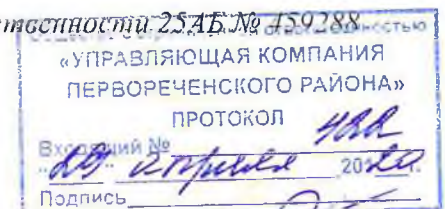 ственности 25АБ № 459288
«УПРАВЛЯЮЩАЯ КОМПАНИЯ
ПЕРВОРЕЧЕНСКОГО РАЙОНА»
ПРОТОКОЛ
Входящий №
"29" апреля 20 20 г.
Подпись